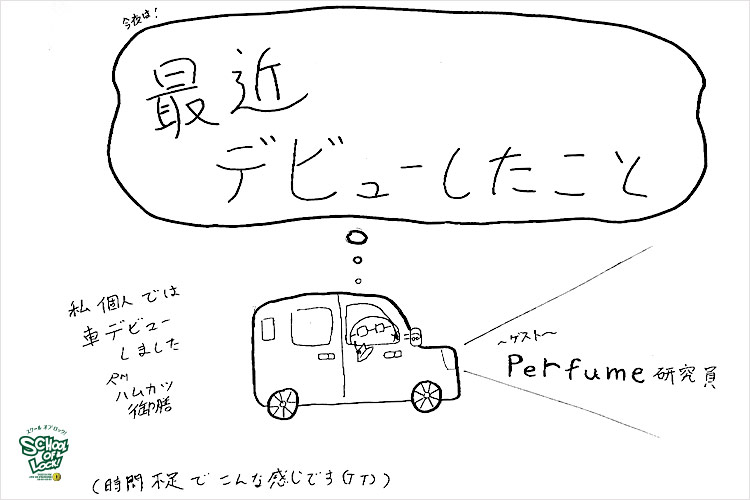 今夜は!
最近
デビューしたこと
私個人では
車デビュー
しました
ハムカツ
御膳
〜ゲスト〜
Perfume 研究員
スクール オブ ロック!
SCHOOL
OF
LOCK!
(時間不足でこんな感じです(TT))